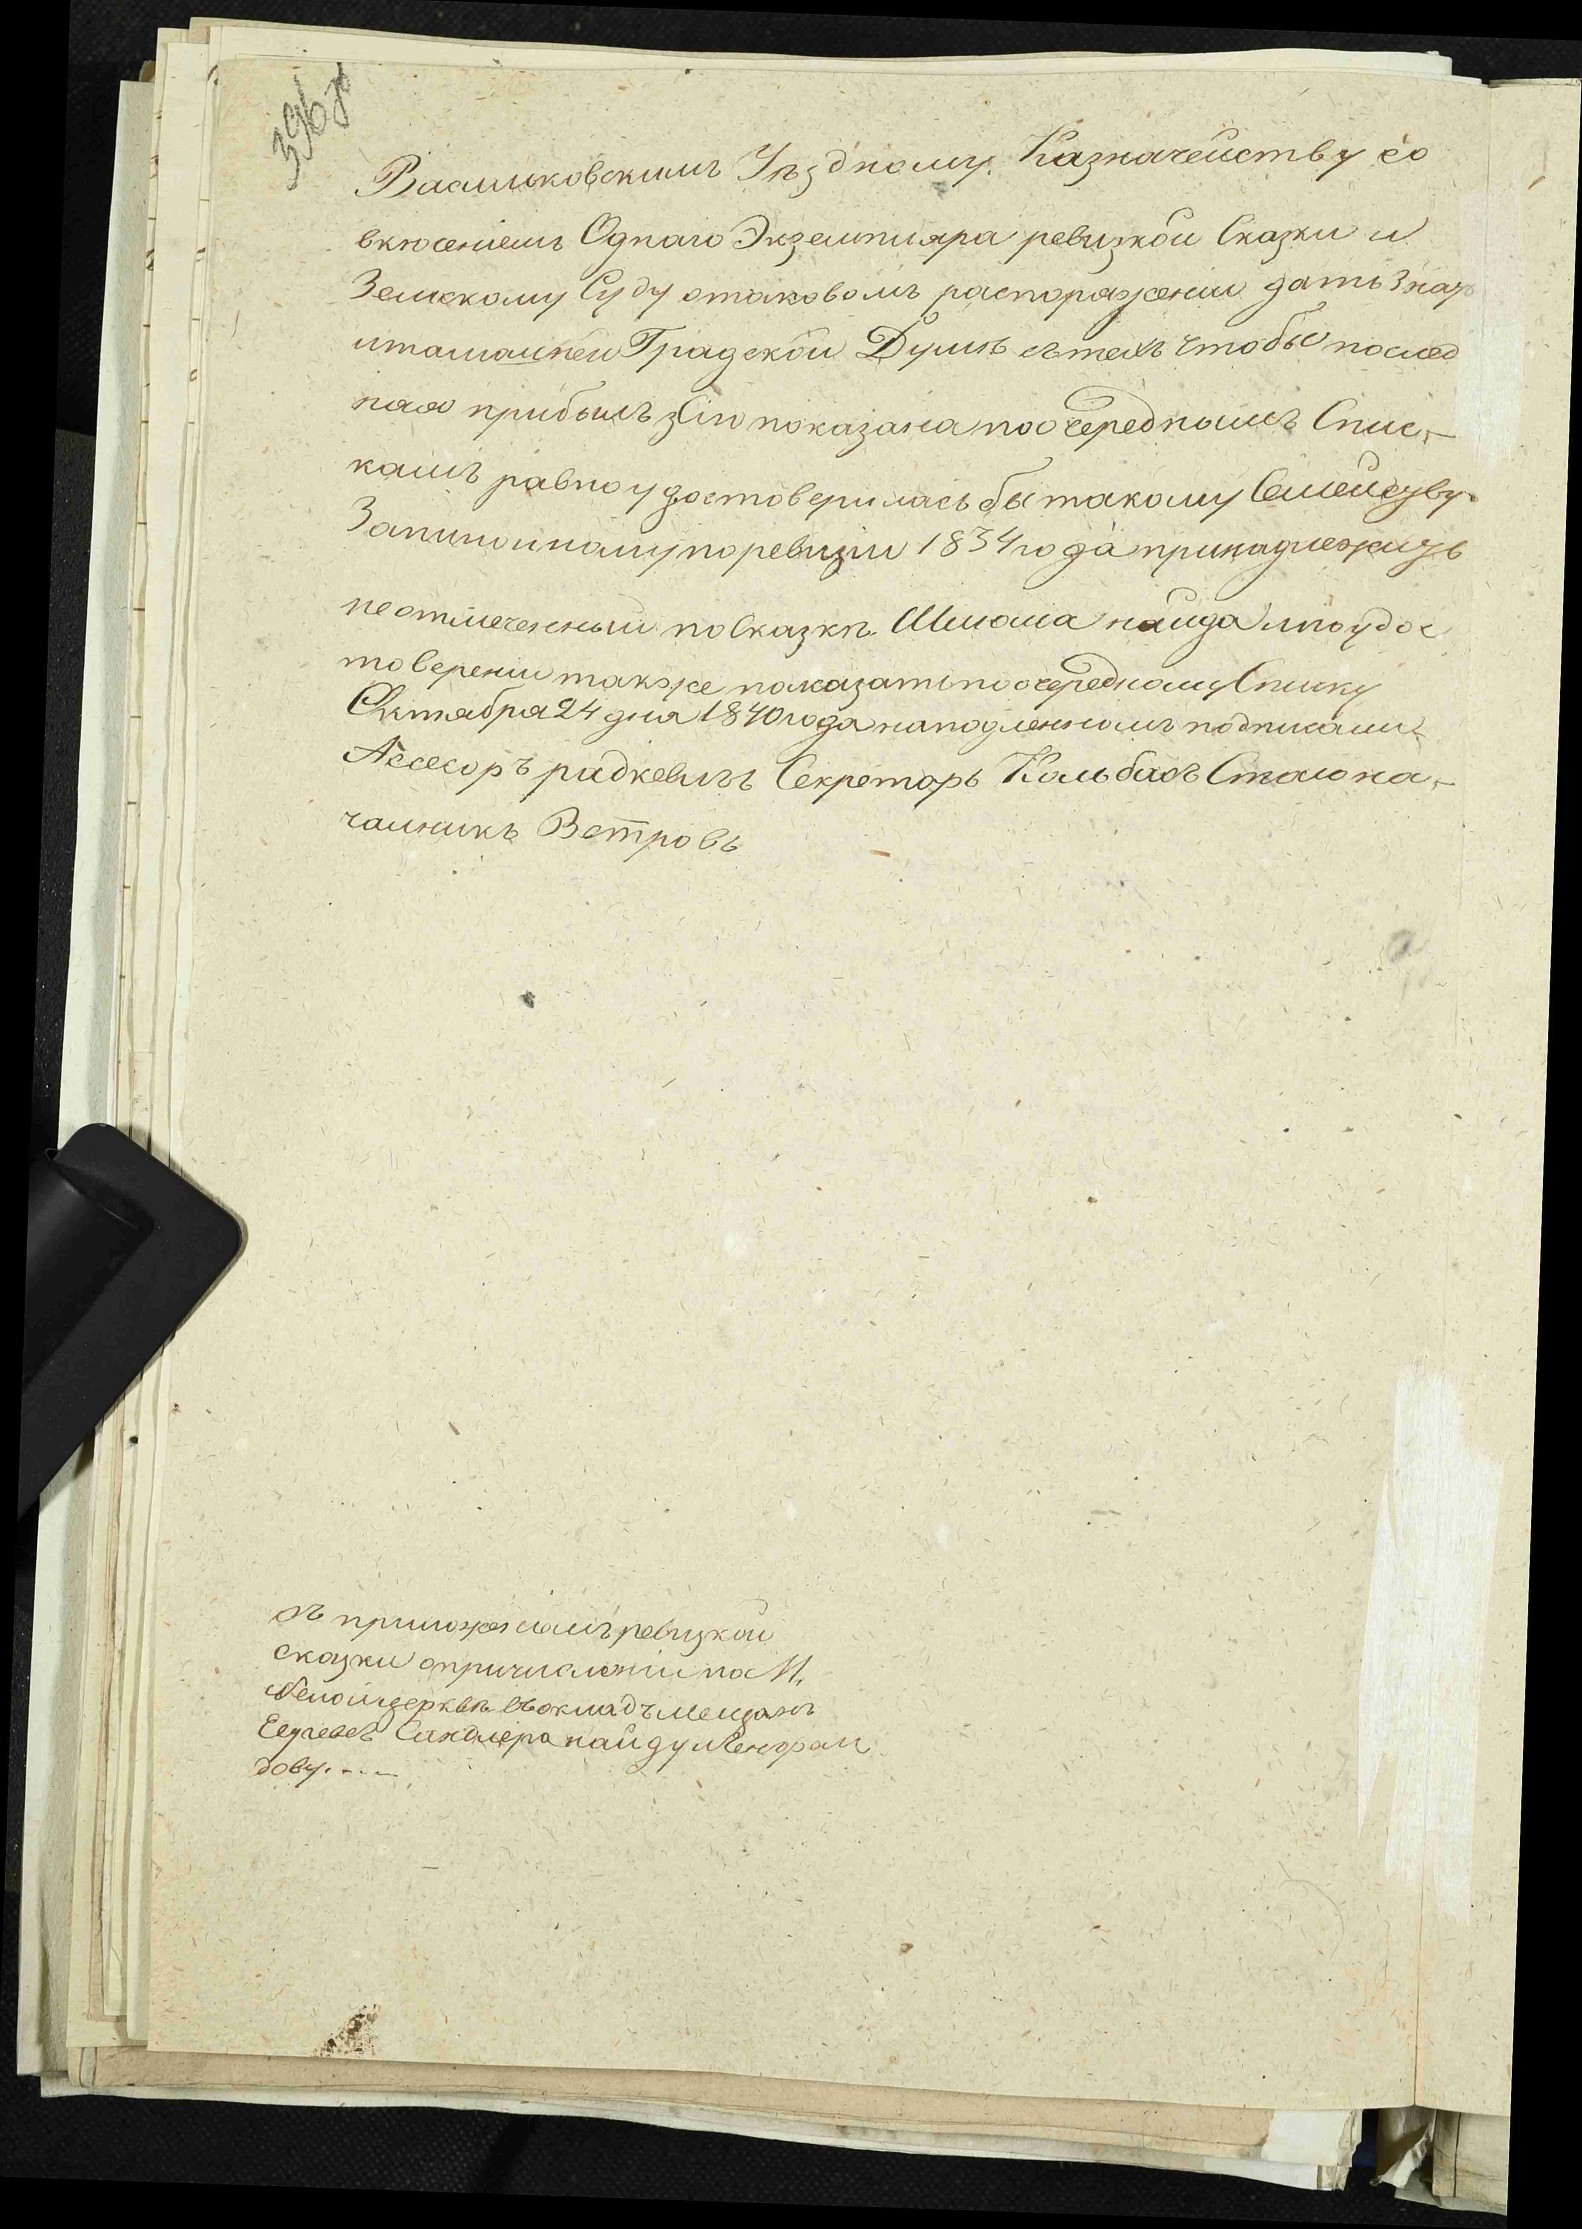 396
Васильковскимъ Уѣздному Казначейству со
вклюсеніемъ Однаго Экземпляра ревизкой Сказки и
Земскому Суду отаковомъ распоряженіи дать знать
итамашней Градской Думѣ стемъ чтобы послед
няя прибылъ Сію показана поочереднымъ Спис-
камъ равно удостоверилась бы такому Семейству
Записиному поревизіи 1834 года принадлежитъ
неотмеченный по Сказкѣ Шмома найда ипоудос
товерении также показать поочередному Списку
Октября 24 дня 1840 года наподленномъ подписали
Асесоръ радкевичъ Секретарь Кольбасъ Столона-
чалникъ Ветровъ
съ приложеніемъ ревизкой
сказки опричисленіи по М.
белойцерквѣ въокладъ мещанъ
Евреевъ найду
дову....